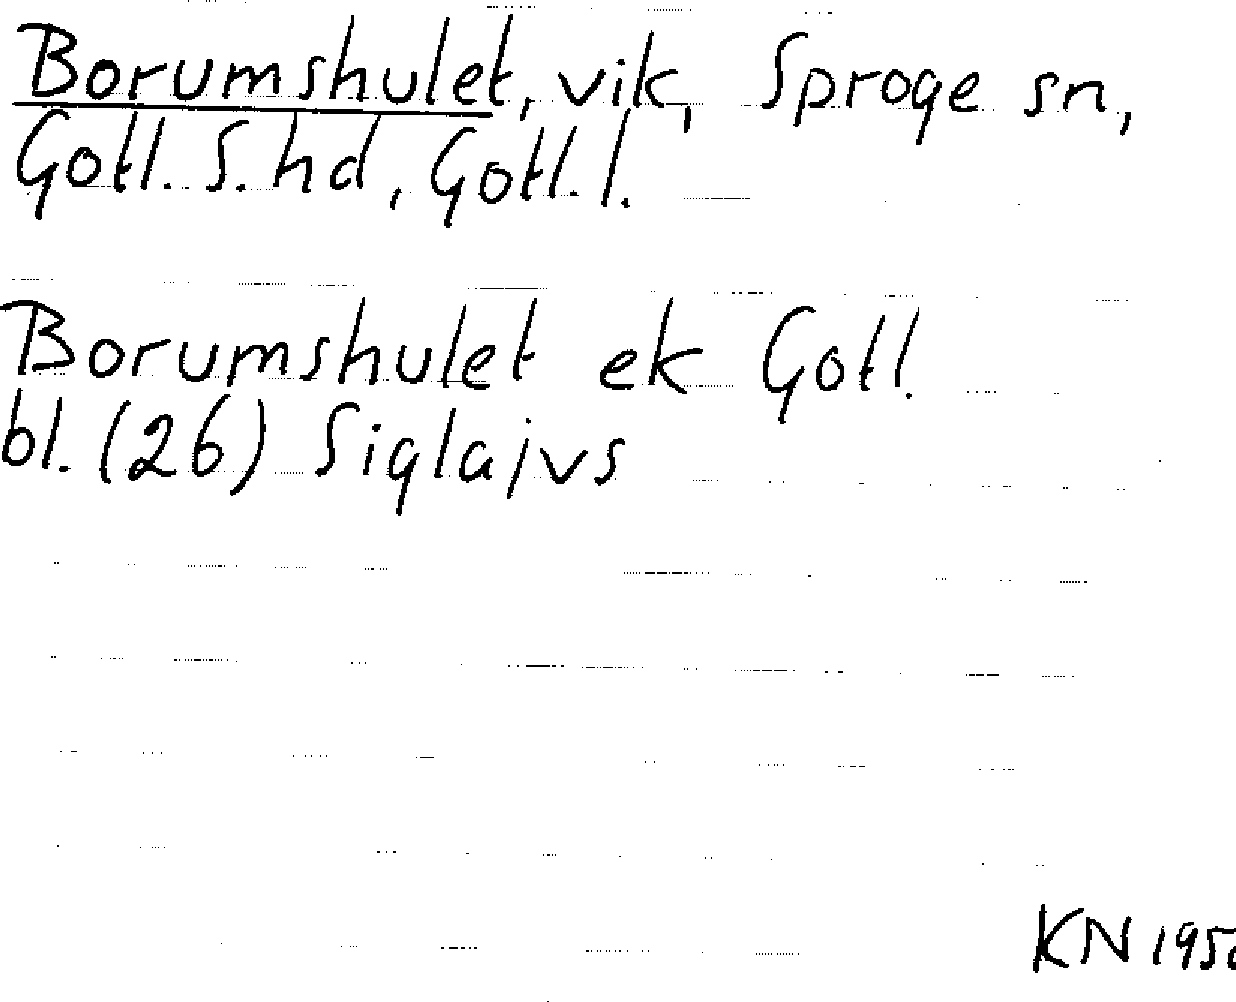 Borumshulet, vik, Sproge sn,
Gotl. S. hd, Gotl. l.
Borumshulet ek Gotl.
bl. (26) Siglajvs
KN